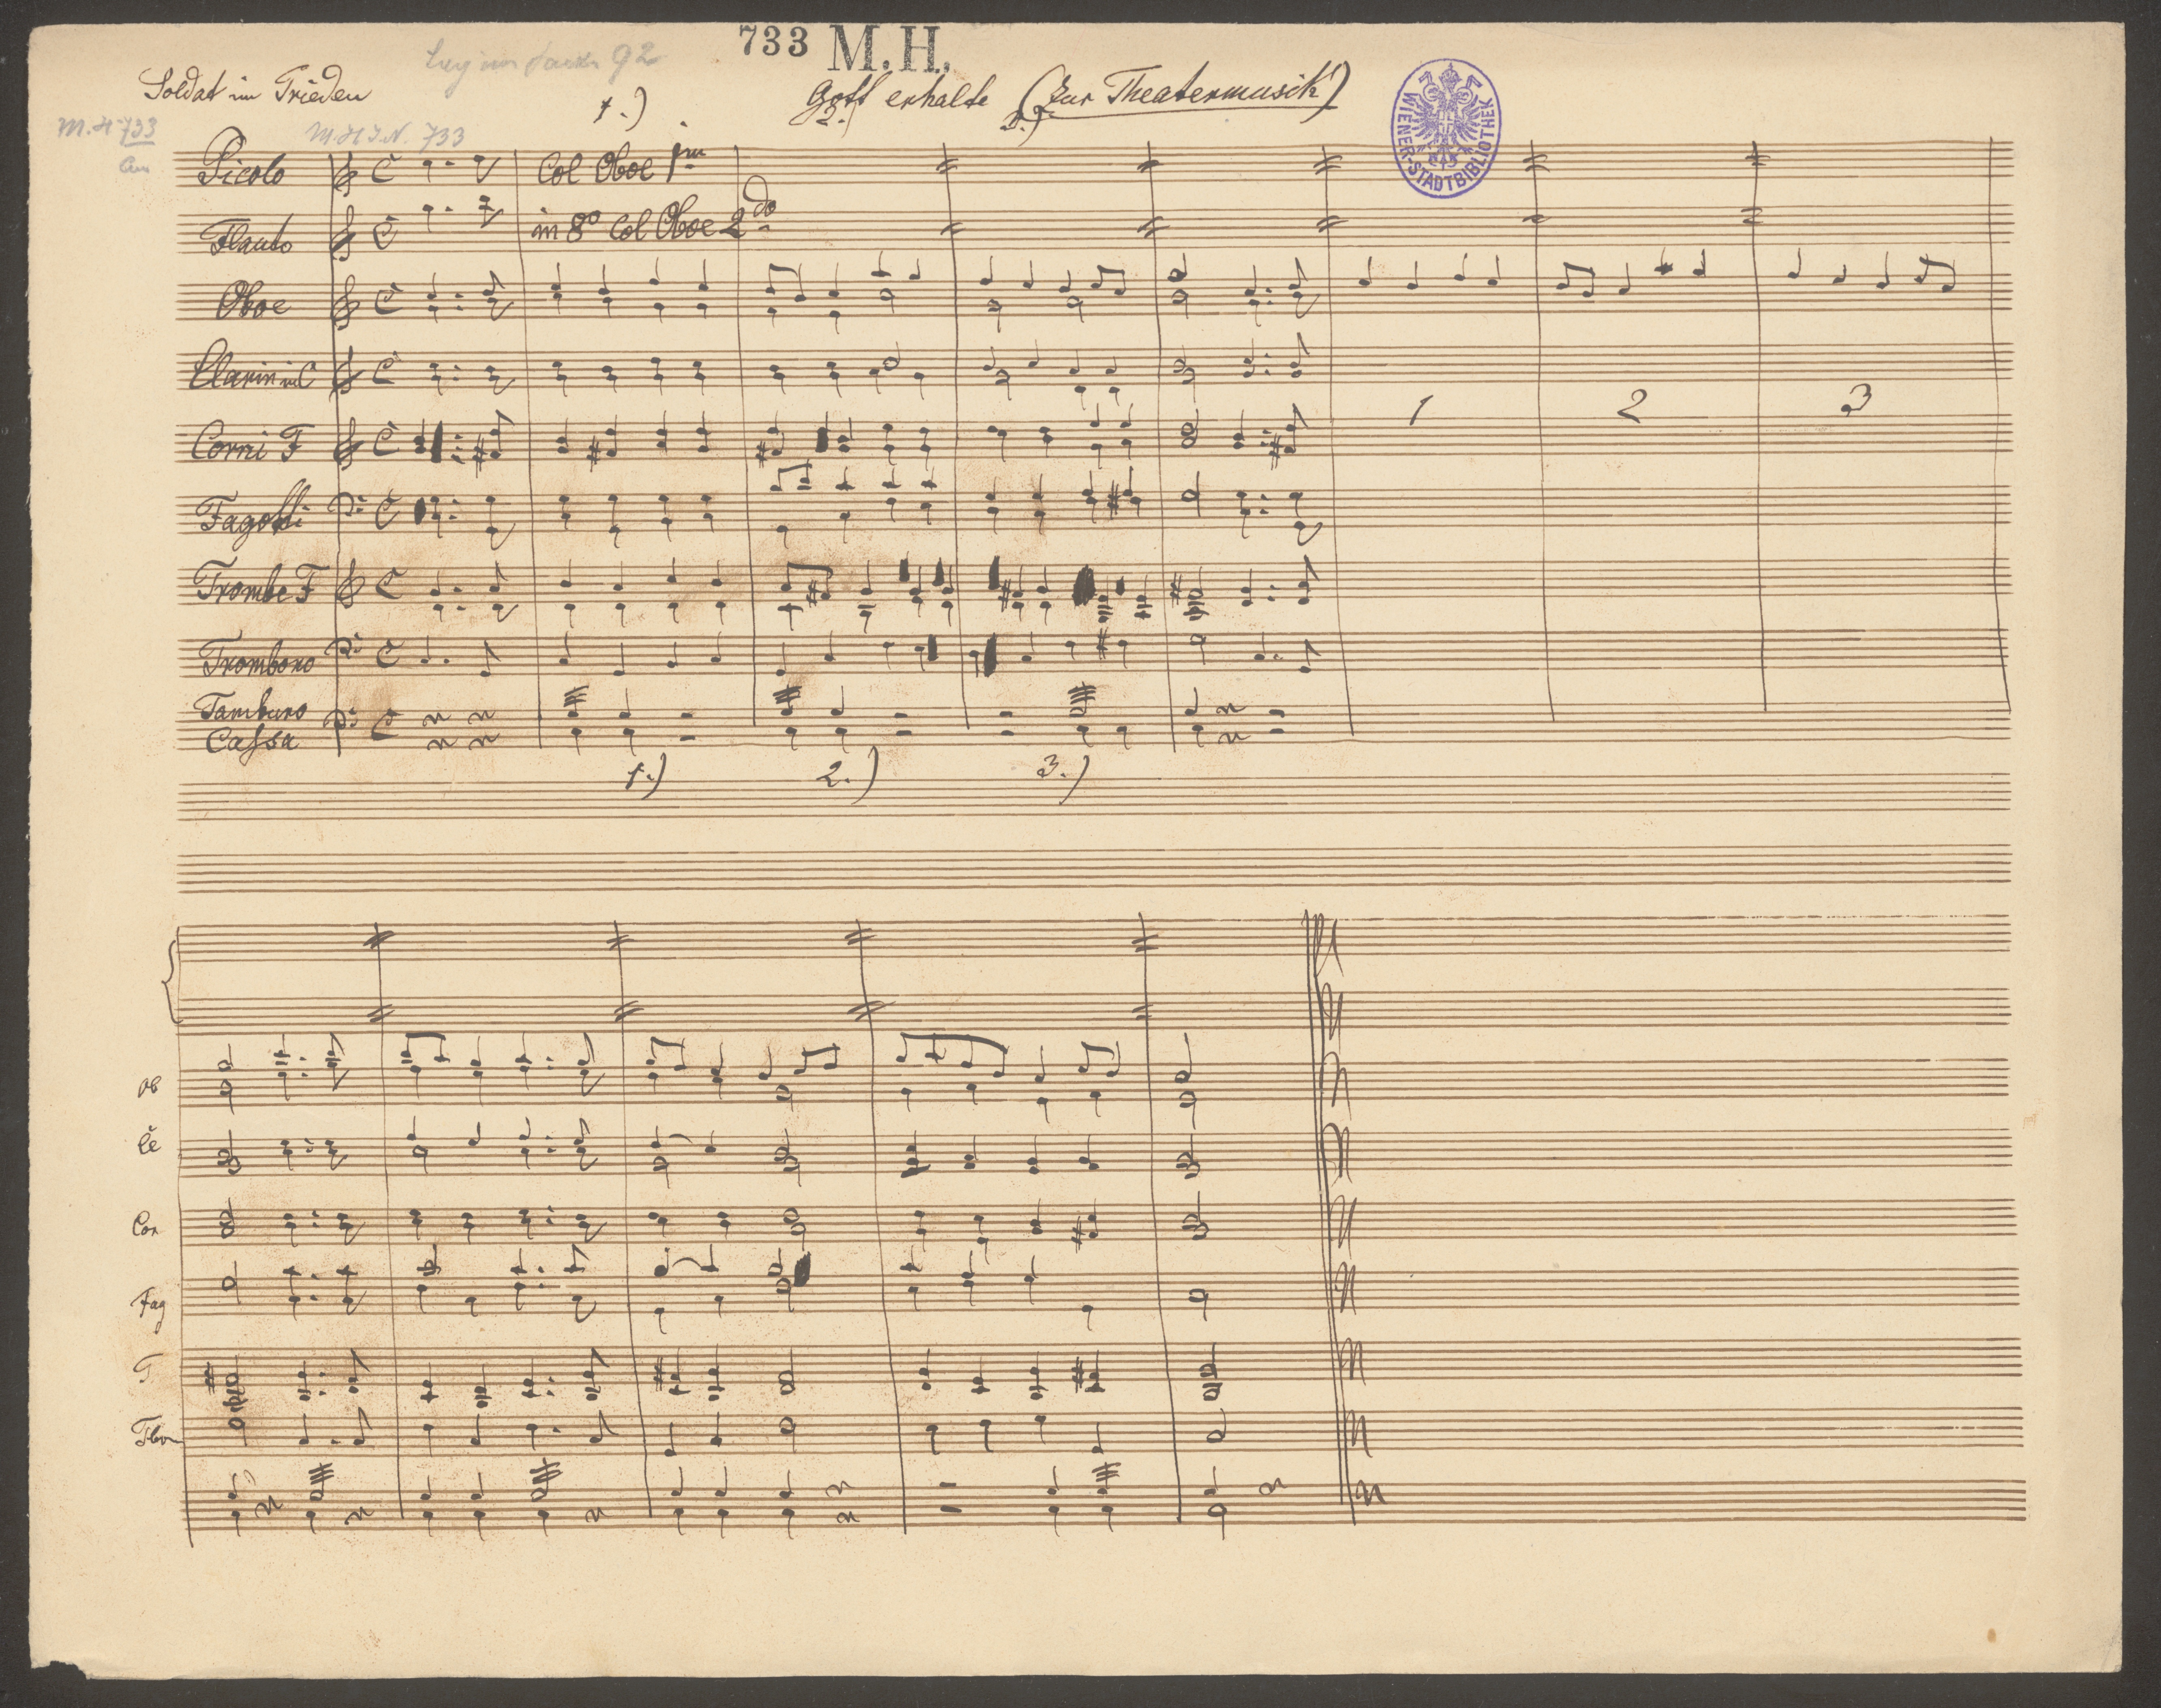 733 M.H.
Soldat im Frieden
Gott erhalte (zur Theatermusik)
1.) 2.) 3.)
M.H 733
M.H I.N. 733
WIENER-STADTBIBLIOTHEK
Picolo Col Oboe 1m
Flauto in 8º Col Oboe 2do
Oboe
Clarin in C
Corni F 1 2 3
Fagotti
Trombe F
Trombono
Tamburo
Cassa
1.) 2.) 3.)
Ob
Cl
Cor
Fag
T
Tbon